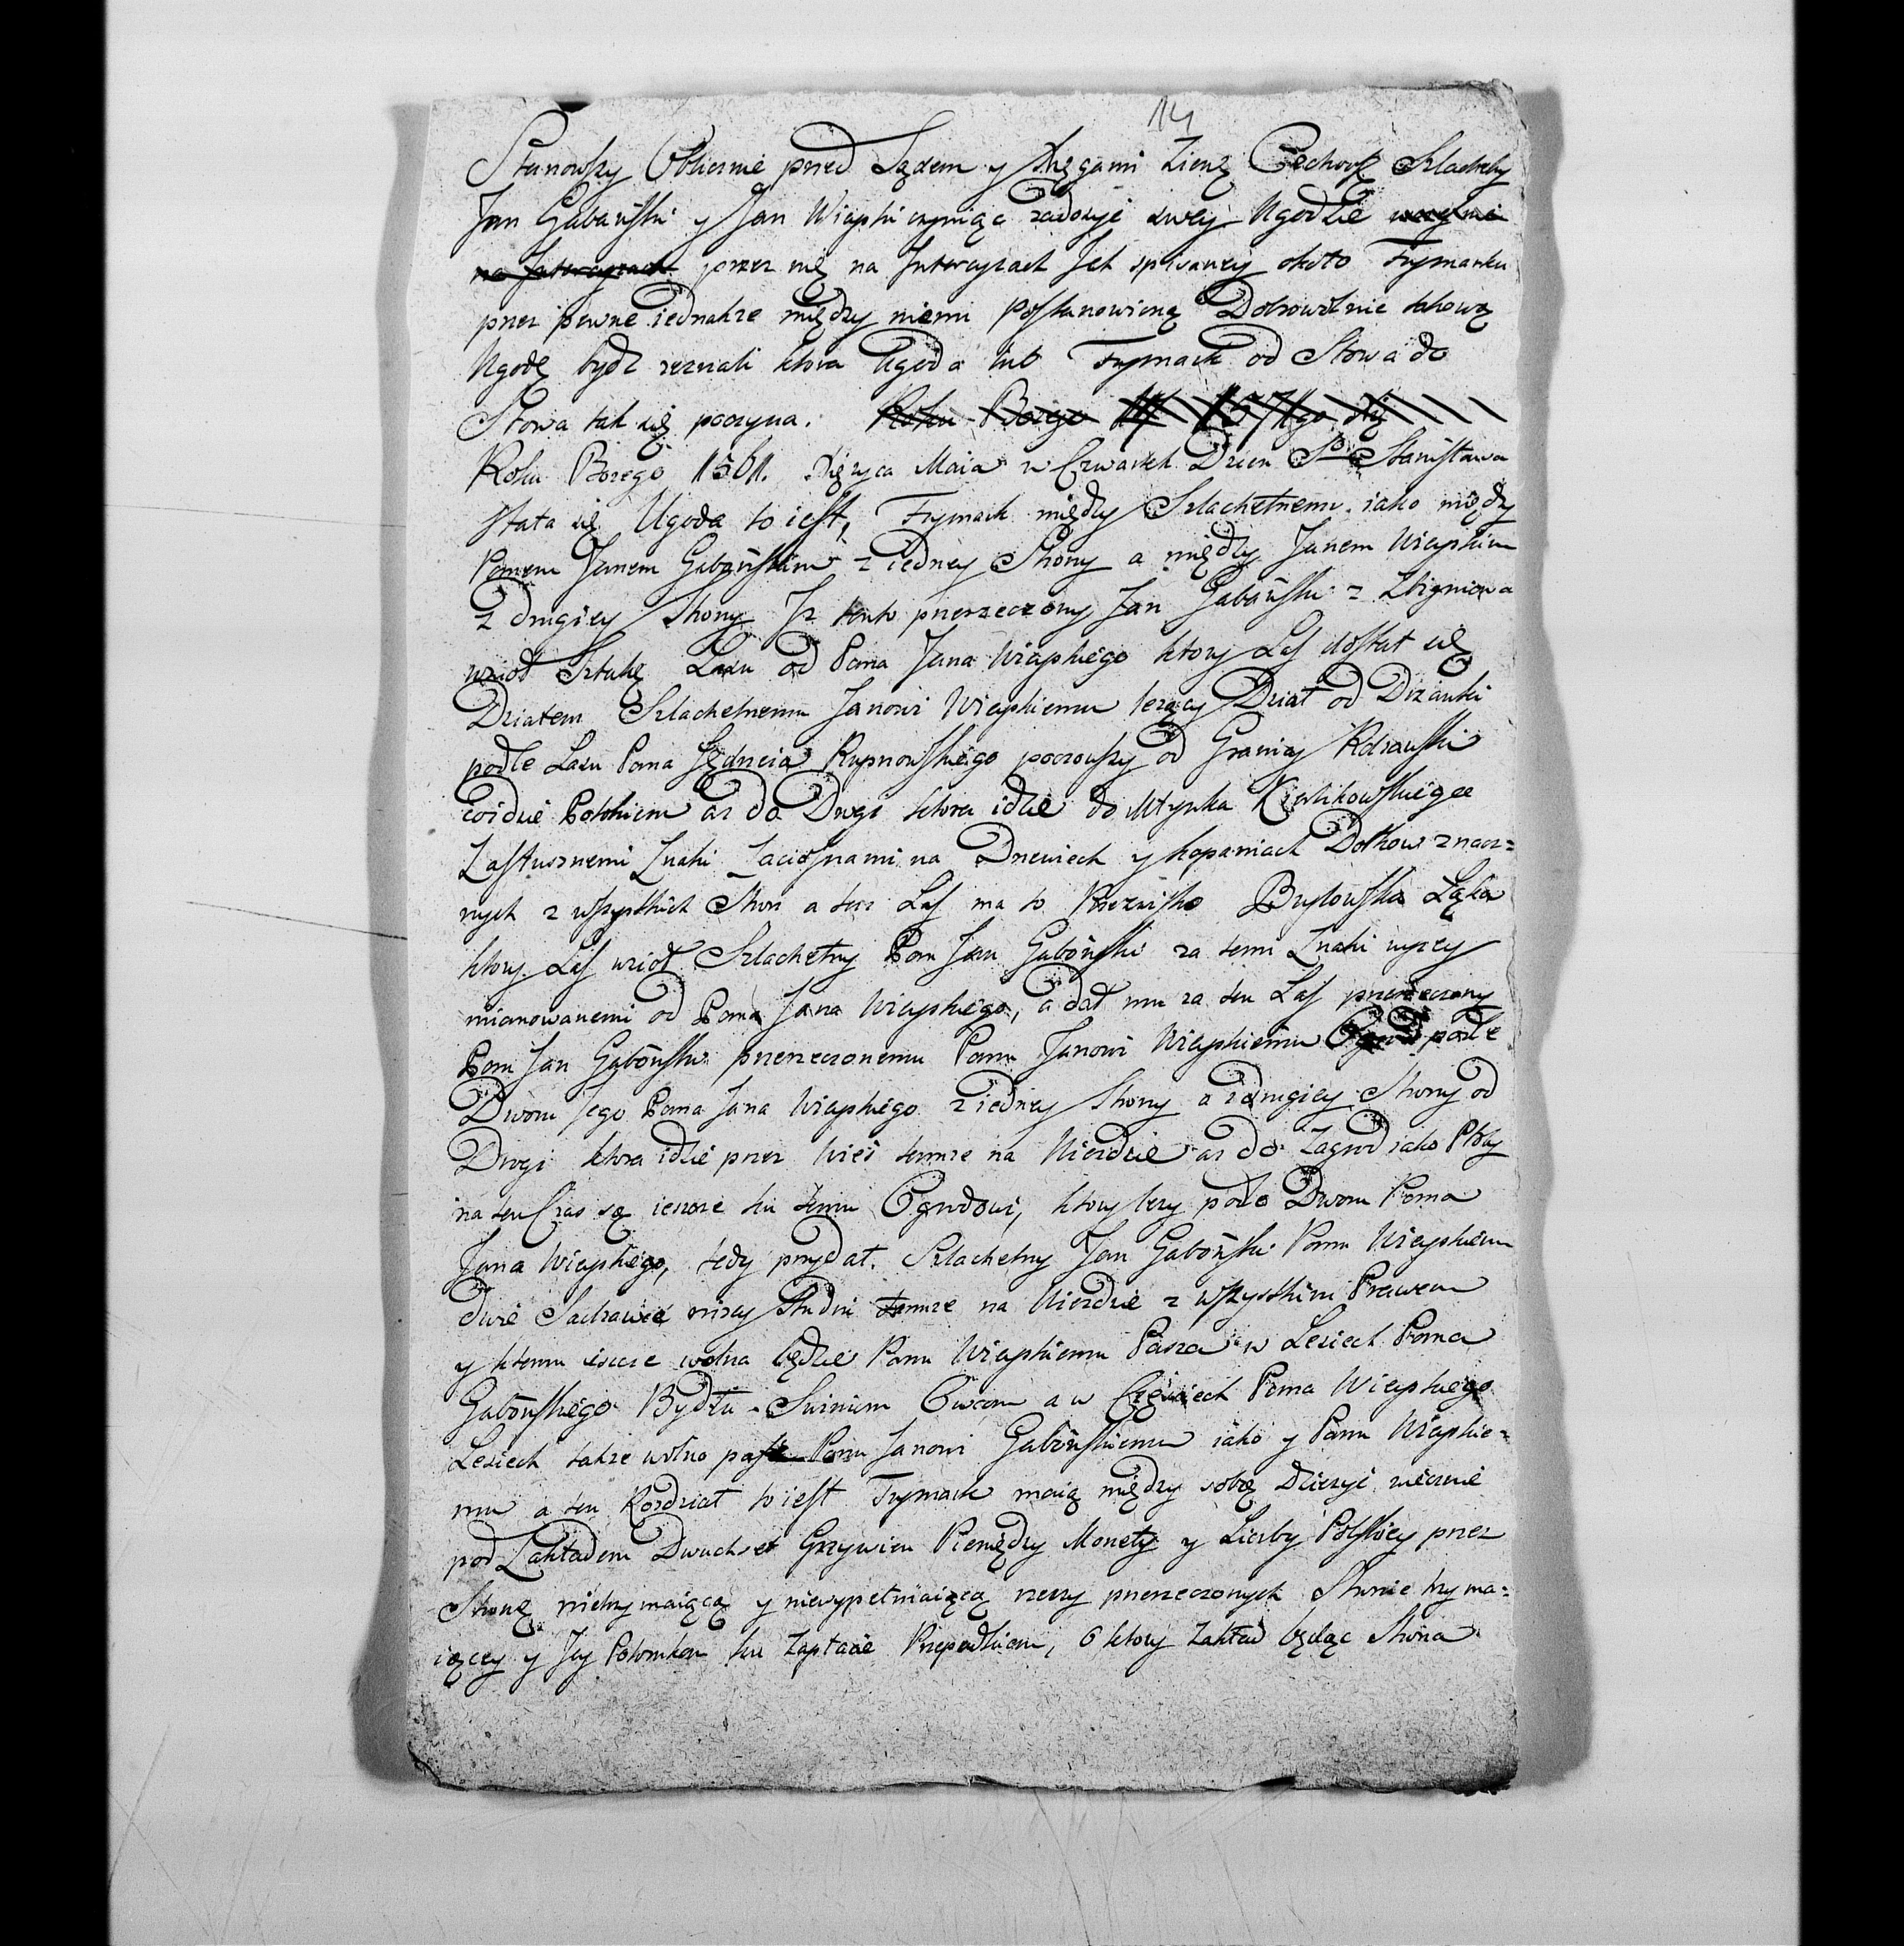 14
Stanowszy Oblicznie przed Sądem y Xięgami Ziemi Czechow Szlachetny
Jan Gabański y Jan Wieyski czyniąc zadosyć swey Ugodzie
na Intercyzach przez się na Intercyzach Ich spisaney około Frymarku
przez pewne iednakże między niemi postanowioną Dobrowolnie takową
Ugodę bydz zeznali ktora Ugoda lub Frymark od Słowa do
Słowa tak się poczyna. Roku Bożego 1571go
Roku Bożego 1561. Xiężyca Maia w Czwartek Dzien So Stanisława
stała się Ugoda to iest, Frymark między Szlachetnemi iako między
Panem Janem Gabańskim z iedney Strony a między Janem Wieyskim
z drugiey Strony Iz tento przerzeczony Jan Gabański z Zbigniewa
wziął Sztukę Lasu od Pana Jana Wieyskiego ktory Las dostał się
Działem Szlachetnemu Janowi Wieyskiemu leżący Dział od
podle Lasu Pana Sędzica Rupnowskiego począwszy od Granicy
coidzie Potokiem az do Drogi ktora idzie do Młynka
Zasłusznemi Znaki Zaciosnami na Drzewiech y kopaniach Dołkow znacz=
nych z wszystkich Stron a ten Las ma to Przezwisko Łąka
ktory Las wziął Szlachetny Pan Jan Gaboński za temi Znaki wyzey
mianowanemi od Pana Jana Wieyskiego, a dał mu za ten Las przerzeczony
Pan Jan Gaboński przerzeczonemu Panu Janowi Wieyskiemu Ogrod podle
Dworu Jego Pana Jana Wieyskiego z iedney Strony a zdrugiey Strony od
Drogi ktora idzie przez Wieś temze na Uiezdzie az do Zagrod iako Płoty
na ten Czas są ieszcze ku temu Ogrodowi, ktory lezy podle Dworu Pana
Jana Wieyskiego, tedy przydał Szlachetny Jan Gaboński Panu Wieyskiemu
dwie Sadzawce nizey Studni temze na Uiezdzie z wszystkim Prawem
y ktemu ieszcze wolna będzie Panu Wieyskiemu Pasza w Lesiech Pana
Gabońskiego Bydłu Swiniom Owcom a w Częściech Pana Wieyskiego
Lesiech takze wolno paść Panu Janowi Gabońskiemu iako y Panu Wieyskie=
mu a ten Rozdział to iest Frymark maią między sobą Dzierzyć wiecznie
pod Zakładem Dwuchset Grzywien Pieniędzy Monety y Liczby Polskiey przez
Stronę nietrzymaiącą y niewypełniaiącą rzeczy przerzeczonych Stronie trzyma=
iącey y Jey Potomkom ku Zapłacie Przepadkiem, o ktory Zakład będąc Strona